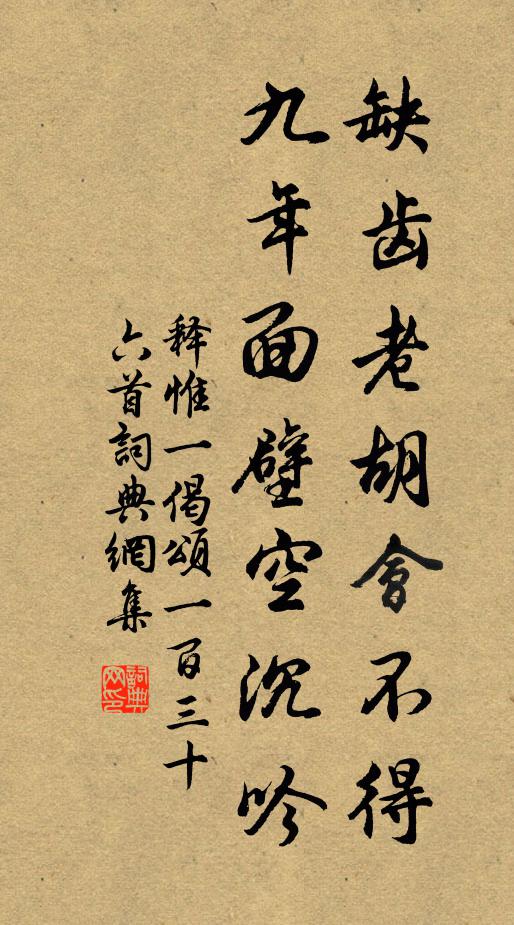 缺齿老胡會不得
九年面壁空沉吟
释惟一偈頌一百三十
六首詞典網集
詞典
网印